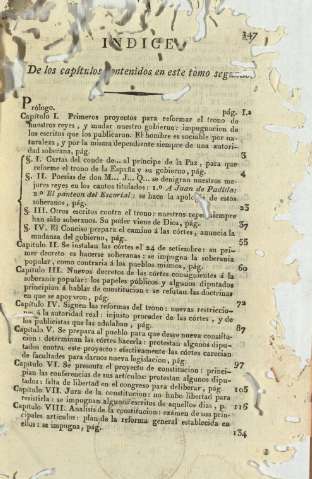 147
INDICE
De los capítulos contenidos en este tomo
Prólogo. pág. I.ª
Capítulo I. Primeros proyectos para reformar el trono de
nuestros reyes, y mudar nuestro gobierno: impugnacion de
los escritos que los publicaron. El hombre es sociable por na-
turaleza, y por la misma dependiente siempre de una autori-
dad soberana, pág. 3
§. I. Cartas del conde de... al príncipe de la Paz, para que
reforme el trono de la España y su gobierno, pág. 4
§. II. Poesías de don M... J... Q... se denigran nuestros me-
jores reyes en los cantos titulados: 1.º A Juan de Padilla:
2.º El panteon del Escorial: se hace la apología de estos
soberanos, pág. 23
§. III. Otros escritos contra el trono: nuestros reyes siempre
han sido soberanos. Su poder viene de Dios, pág. 37
§. IV. El Conciso prepara el camino á las córtes, anuncia la
mudanza del gobierno, pág. 55
Capítulo II. Se instalan las córtes el 24 de setiembre: su pri-
mer decreto es hacerse soberanas: se impugna la soberanía
popular, como contraria á los pueblos mismos, pág. 60
Capítulo III. Nuevos decretos de las córtes consiguientes á la
soberanía popular: los papeles públicos y algunos diputados
principian á hablar de constitucion: se refutan las doctrinas
en que se apoyaron, pág. 72
Capítulo IV. Siguen las reformas del trono: nuevas restriccio-
nes á la autoridad real: injusto proceder de las córtes, y de
los publicistas que las adulaban, pág. 87
Capítulo V. Se prepara el pueblo para que desee nueva constitu-
cion: determinan las córtes hacerla: protestan algunos dipu-
tados contra este proyecto: efectivamente las córtes carecian
de facultades para darnos nueva legislacion, pág. 97
Capítulo VI. Se presenta el proyecto de constitucion: princi-
pian las conferencias de sus artículos: protestan algunos dipu-
tados: falta de libertad en el congreso para deliberar, pág. 105
Capítulo VII. Jura de la constitucion: no hubo libertad para
resistirla: se impugnan algunos escritos de aquellos dias, p. 116
Capítulo VIII. Análisis de la constitucion: exámen de sus prin-
cipales artículos: plan de la reforma general establecida en
ellos: se impugna, pág. 134